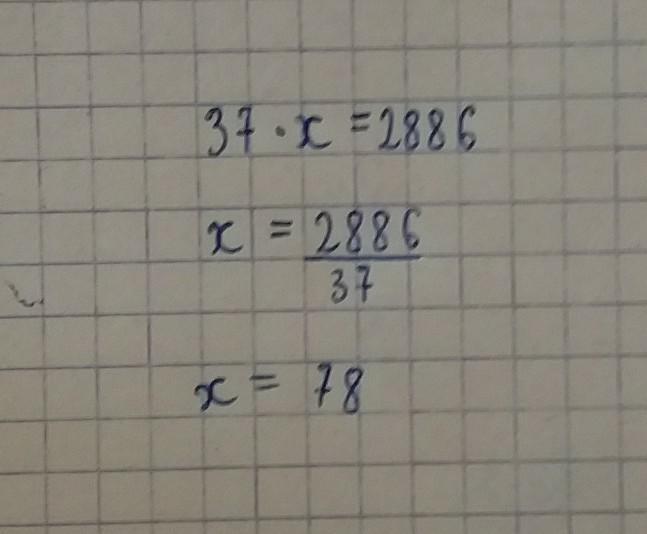 37 · x = 2886
x = 2886/37
x = 78